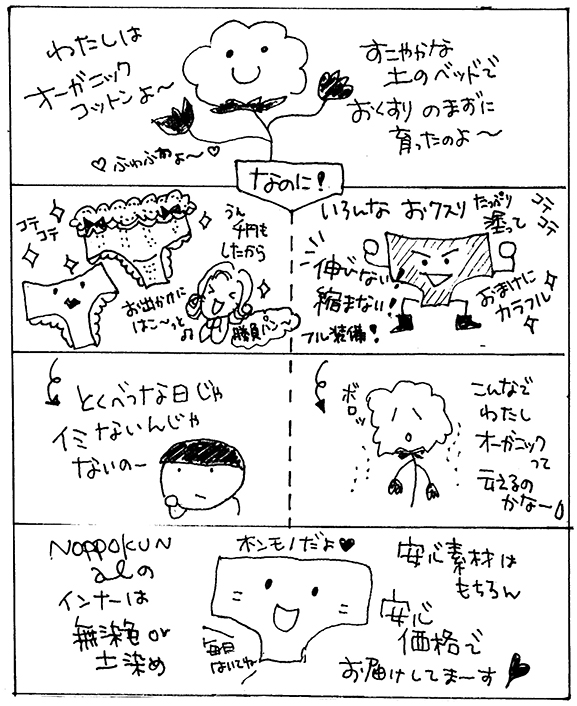 わたしは
オーガニック
コットンよ〜
♡ふわふわよ〜♡
すこやかな
土のベッドで
おくすりのまずに
育ったのよ〜
なのに!
コテ
コテ
うん
千円も
したから
お出かけに
はこ〜っと
勝負パン〜
いろんな おクスリ
たっぷり
塗って
コテ
コテ
伸びない!
縮まない!
フル装備!
おまけに
カラフル
とくべつな日じゃ
イミないんじゃ
ないの〜
ボロッ
こんなで
わたし
オーガニック
って
云えるの
かな〜
NOPPOKUN
alの
インナーは
無染色or
土染め
ホンモノだよ♥
毎日
はいてね
安心素材は
もちろん
安心
価格で
お届けしてま〜す